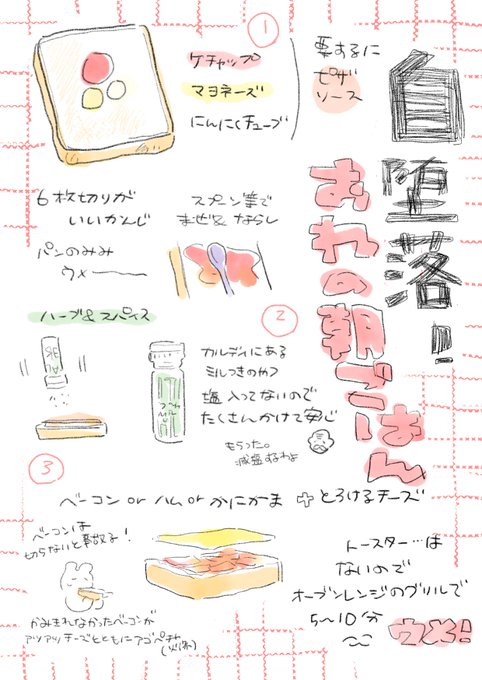 自
堕落!!
おれの朝ごはん
①
ケチャップ
マヨネーズ
にんにくチューブ
要するに
ピザ
ソース
6枚切りが
いいかんじ
パンのみみ
ウメー
スプーン等で
まぜ&ならし
②
ハーブ&スパイス
カルディにある
ミルつきのやつ
塩入ってないので
たくさんかけて安心
もらった。
減塩するわよ
③
ベーコン or ハム or かにかま + とろけるチーズ
ベーコンは
切らないと事故る!
かみきれなかったベーコンが
アツアツチーズとともにアゴペチャ
(火傷)
トースター…は
ないので
オーブンレンジのグリルで
5〜10分
ウメェ!